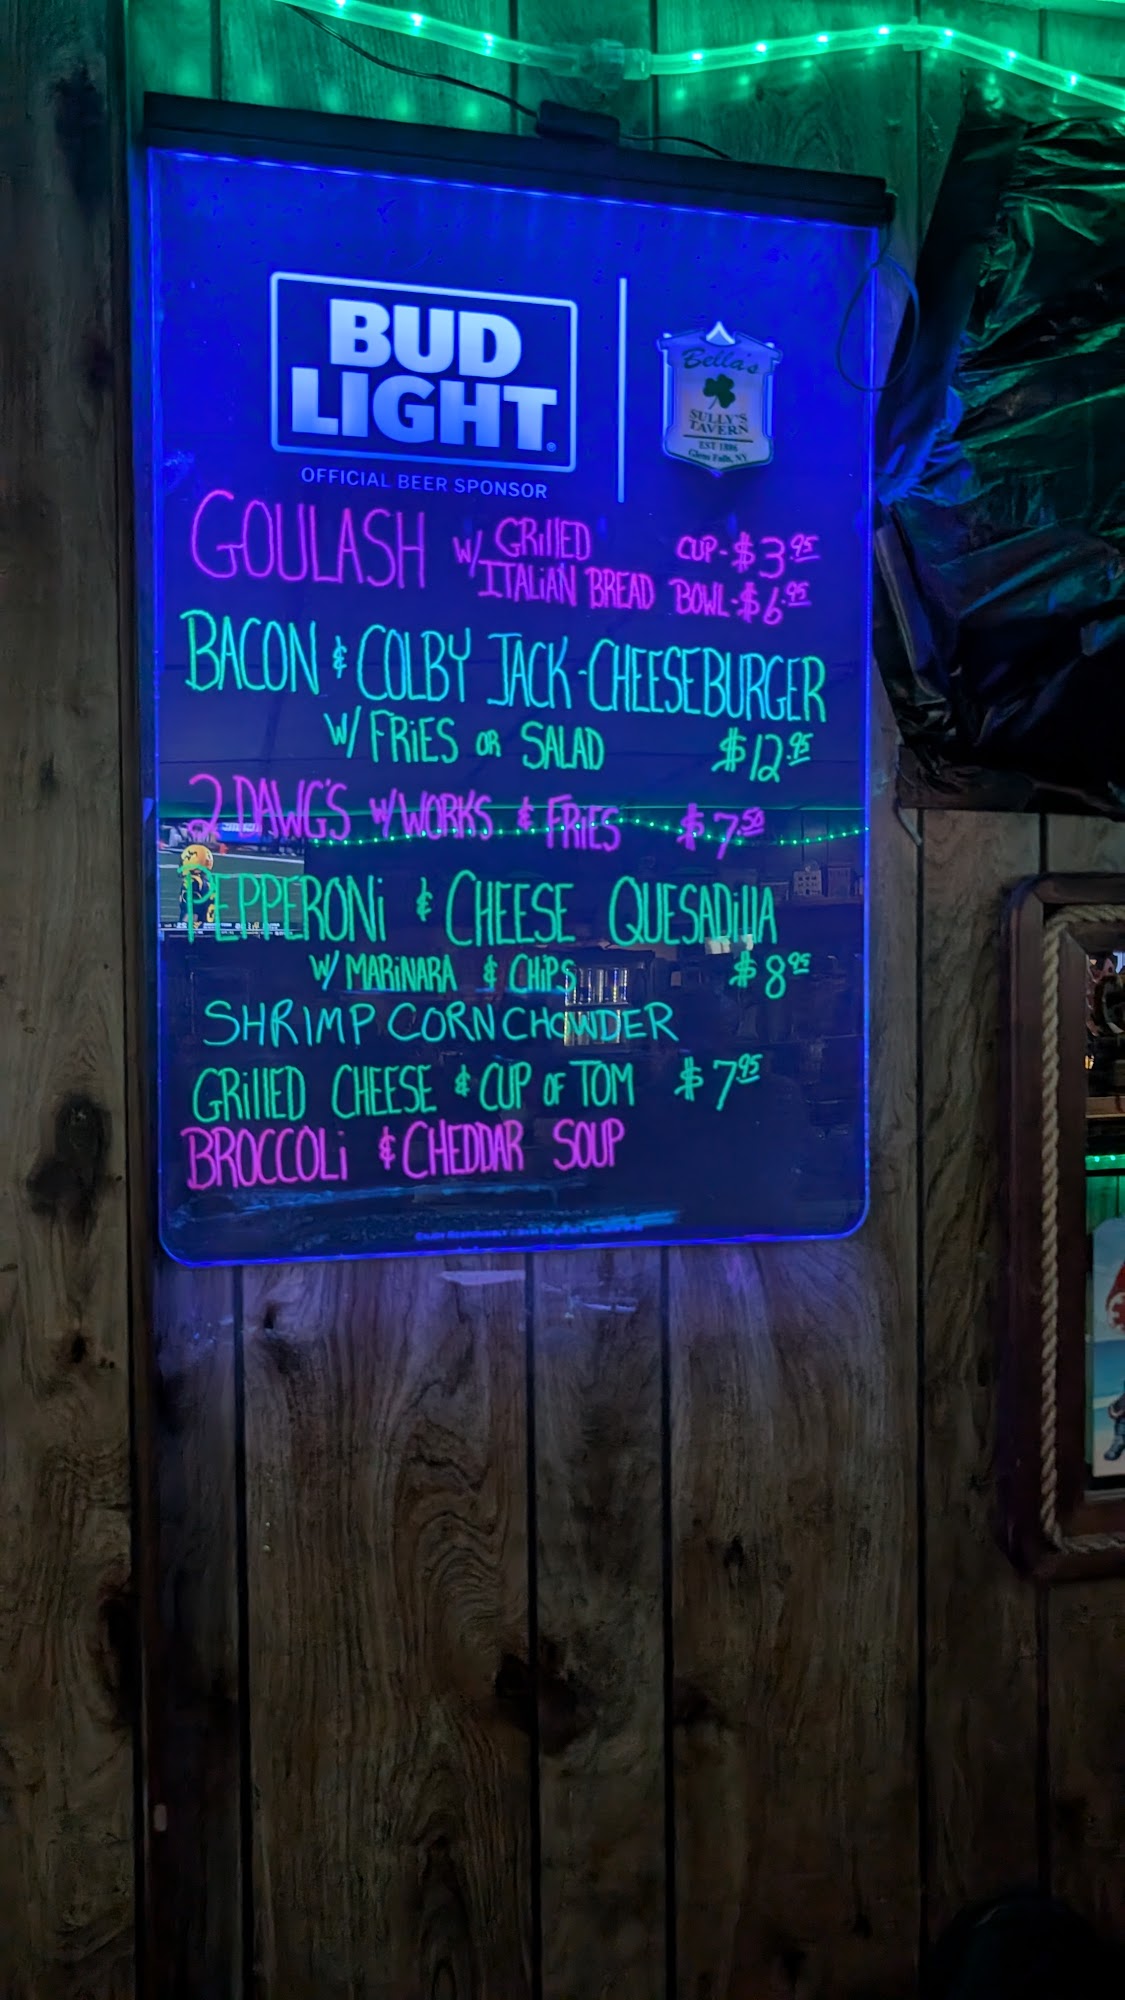 BUD
LIGHT®
OFFICIAL BEER SPONSOR
Bella's
SULLY'S
TAVERN
EST 1886
Glens Falls, NY
GOULASH w/ GRillED CUP-$3.95
ITALiAN BREAD BOWL-$6.95
BACON & COLBY JACK-CHEESEBURGER
W/ FRiES OR SALAD $12.95
2 DAWG'S w/WORKS & FRiES $7.50
PEPPERONi & CHEESE QUESADillA
W/ MARiNARA & CHiPS $8.95
SHRIMP CORN CHOWDER
GRillED CHEESE & CUP OF TOM $7.95
BROCCOLi & CHEDDAR SOUP